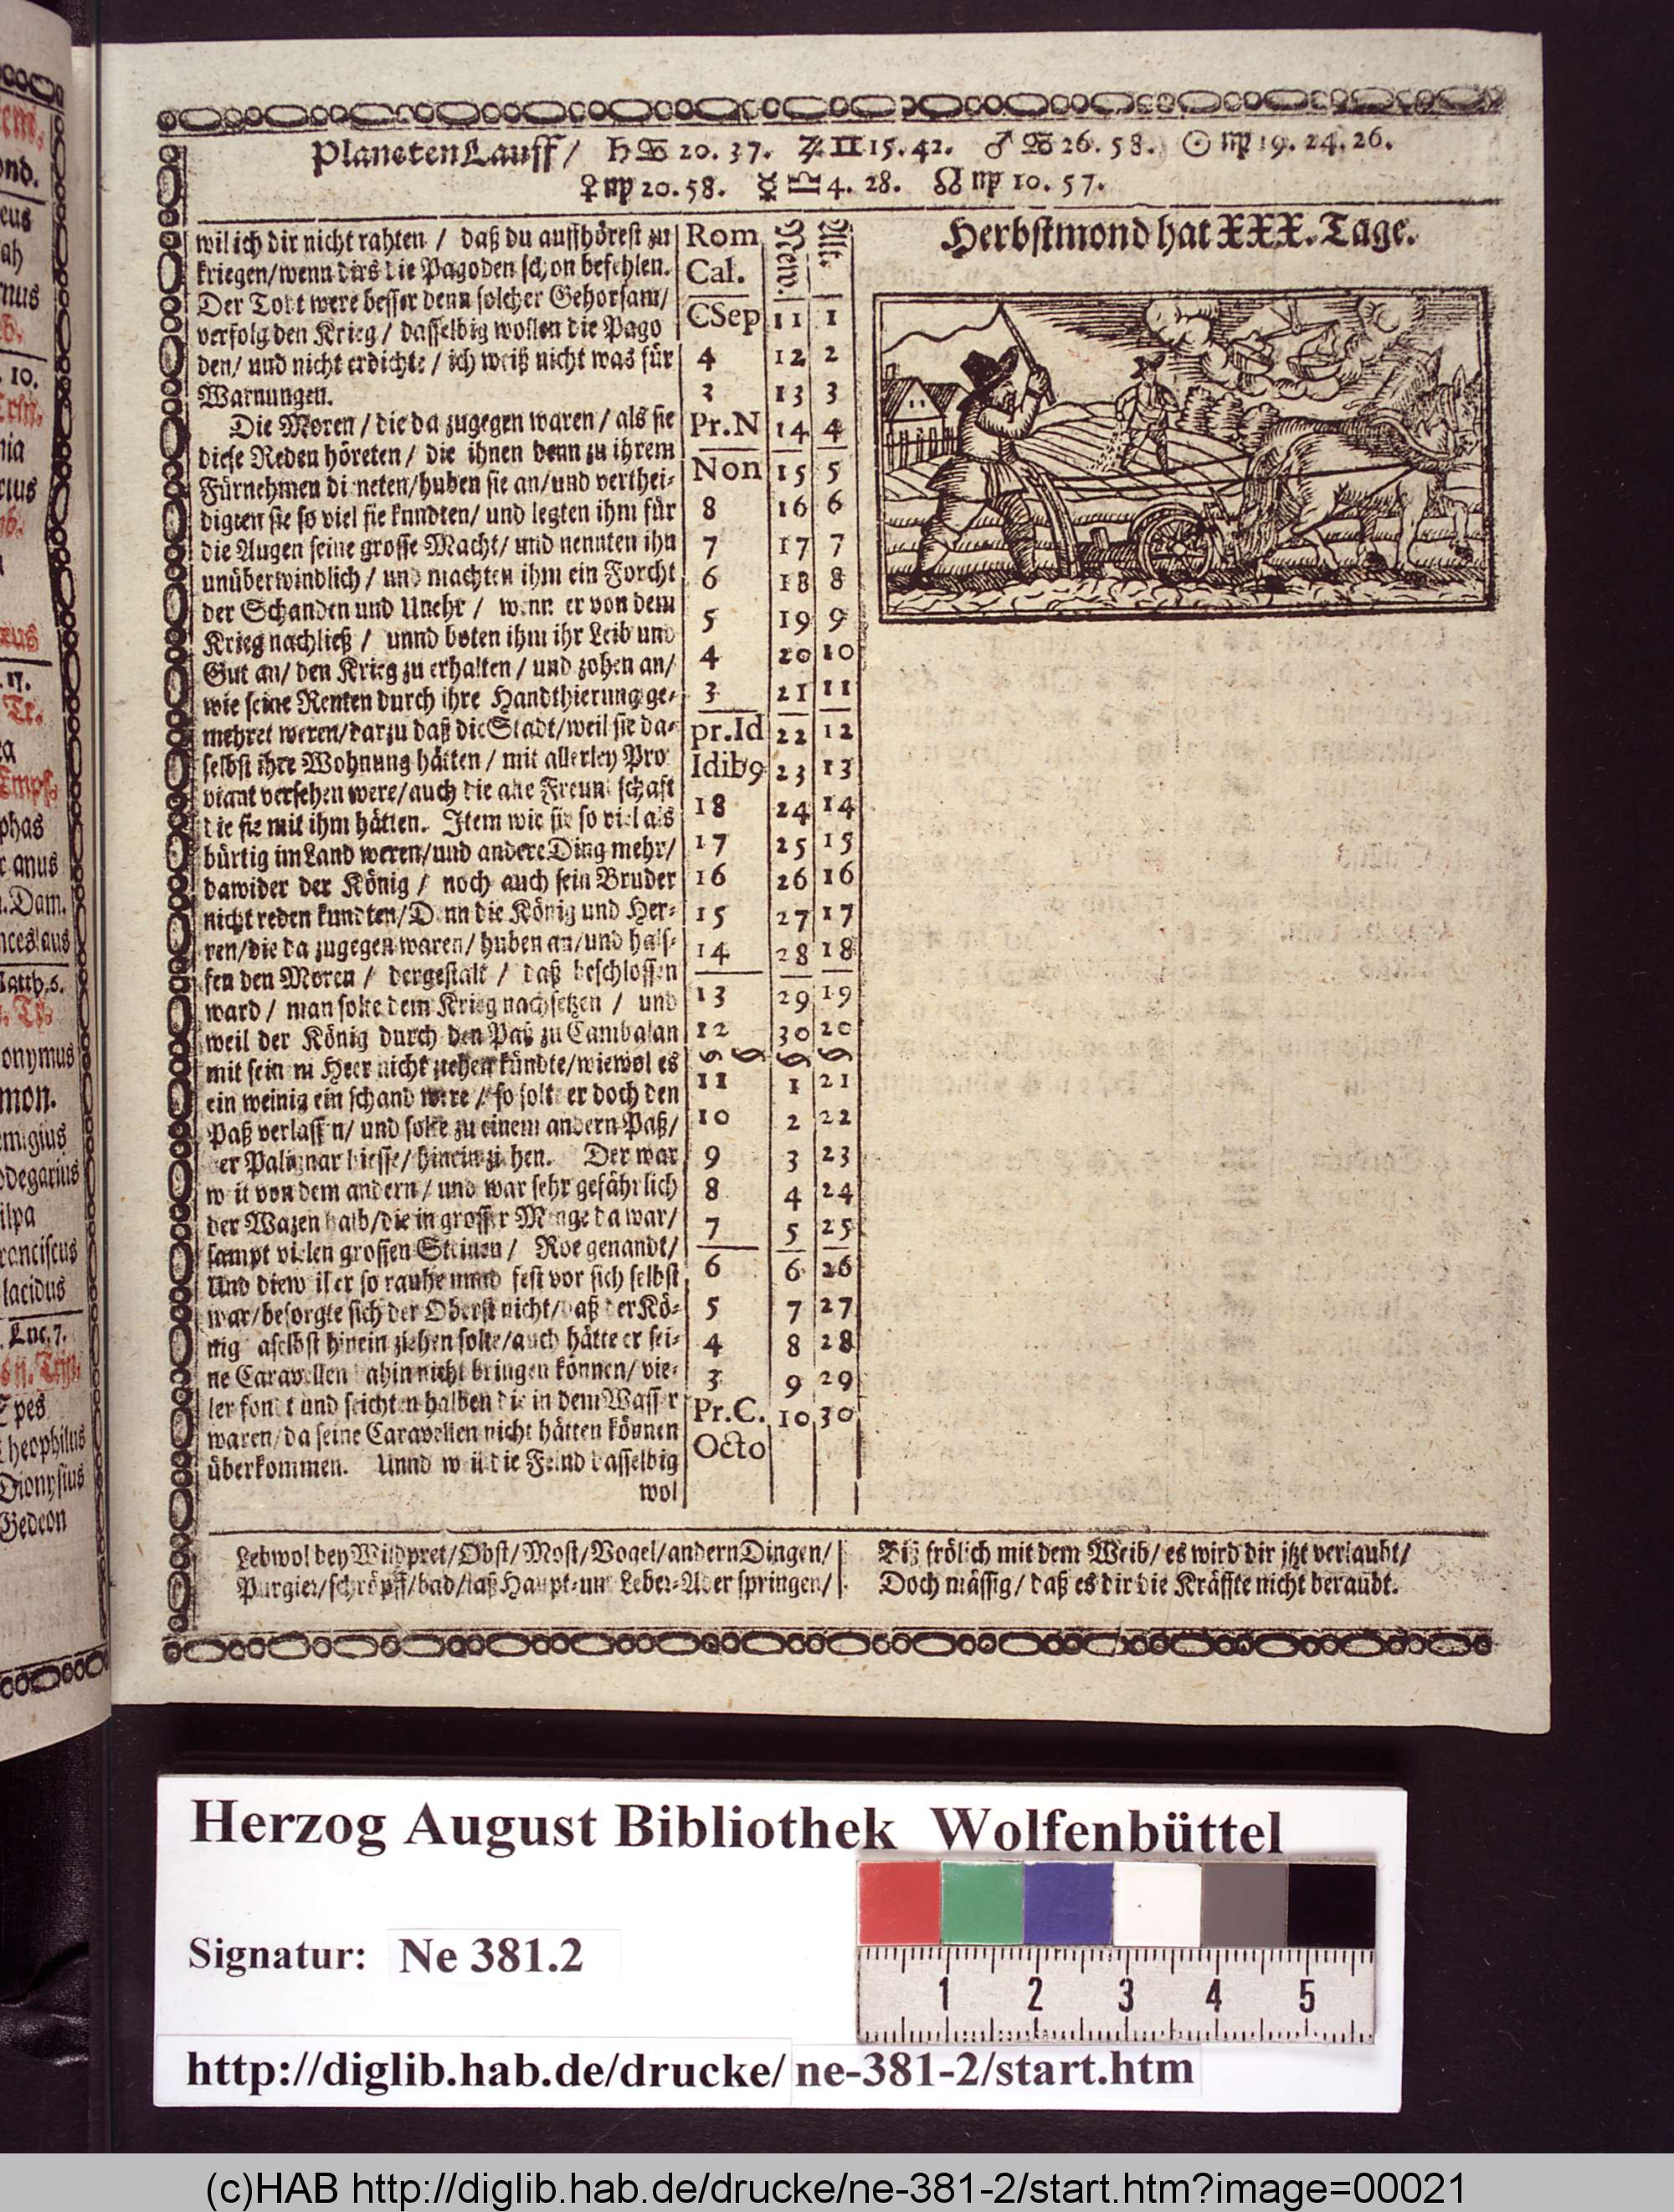 Planeten Lauff / ♄ ♋ 20. 37. ♃ ♊ 15. 42. ♂ ♋ 26. 58. ☉ ♍ 19. 24. 26.
♀ ♍ 20. 58. ☿ ♎ 4. 28. ☊ ♍ 10. 57.
wil ich dir nicht rahten / daß du auffhörest zu
kriegen/wenn dirs die Pagoden schon befehlen.
Der Todt were besser denn solcher Gehorsam/
verfolg den Krieg / dasselbig wollen die Pago
den/ und nicht erdichte / ich weiß nicht was für
Warnungen.
Die Moren / die da zugegen waren / als sie
diese Reden höreten / die ihnen denn zu ihrem
Fürnehmen dieneten/huben sie an/und verthei-
digten sie so viel sie kundten/ und legten ihm für
die Augen seine grosse Macht/ und nennten ihn
unüberwindlich / und machten ihm ein Forcht
der Schanden und Unehr / wenn er von dem
Krieg nachließ / unnd boten ihm ihr Leib und
Gut an/ den Krieg zu erhalten / und zohen an/
wie seine Renten durch ihre Handthierung ge-
mehret weren/darzu daß die Stadt/weil sie da-
selbst ihre Wohnung hätten / mit allerley Pro
viant versehen were/auch die alte Freundschaft
die sie mit ihm hätten. Item wie sie so viel als
bürtig im Land weren/und andere Ding mehr/
dawider der König / noch auch sein Bruder
nicht reden kundten/Denn die König und Her-
ren/die da zugegen waren/ huben an/und halff-
fen den Moren / dergestalt / daß beschlossen
ward / man solte dem Krieg nachsetzen / und
weil der König durch den Paß zu Cambalan
mit seinem Heer nicht ziehen kündte/wiewol es
ein weinig ein schand were / so solte er doch den
Paß verlassen/ und solte zu einem andern Paß/
der Palignar hiesse/ hinein ziehen. Der war
weit von dem andern / und war sehr gefährlich
der Wazen halb/die in grosser Menge da war/
sampt vielen grossen Steinen / Roe genandt/
Und dieweil er so rauhe unnd fest vor sich selbst
war/besorgte sich der Oberst nicht/daß der Kö-
nig daselbst hinein ziehen solte/auch hätte er sei-
ne Caravellen dahin nicht bringen können/ vie-
ler und seichten halben die in dem Wasser
waren/da seine Caravellen nicht hätten können
überkommen. Unnd weil die Feind dasselbig
wol
Rom Cal. | New. | Alt.
CSep 11 1
4 12 2
3 13 3
Pr.N 14 4
Non 15 5
8 16 6
7 17 7
6 18 8
5 19 9
4 20 10
3 21 11
pr.Id 22 12
Idib9 23 13
18 24 14
17 25 15
16 26 16
15 27 17
14 28 18
13 29 19
12 30 20
11 1 21
10 2 22
9 3 23
8 4 24
7 5 25
6 6 26
5 7 27
4 8 28
3 9 29
Pr.C. 10 30
Octo
Herbstmond hat XXX. Tage.
Lebwol bey Wildpret/Obst/Most/Vogel/andern Dingen/
Purgier/schröpff/bad/laß Haupt-und Leber-Ader springen/
Biß frölich mit dem Weib/ es wird dir jtzt verlaubt/
Doch mässig/ daß es dir die Kräffte nicht beraubt.
Herzog August Bibliothek Wolfenbüttel
Signatur: Ne 381.2
1 2 3 4 5
http://diglib.hab.de/drucke/ne-381-2/start.htm
(c)HAB http://diglib.hab.de/drucke/ne-381-2/start.htm?image=00021